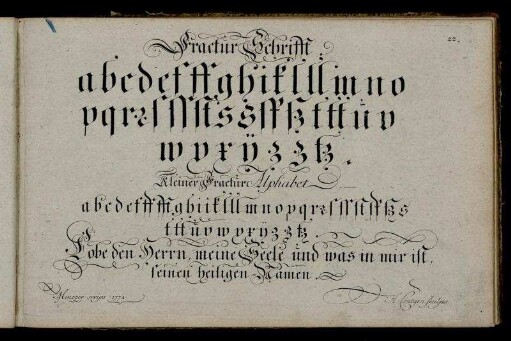 22.
Fractur Schrifft.
a b c d e f ff g h i k l ll m n o
p q r e s ſ ſſ ſt s S ſ ß tz t tt ü v
w y x ÿ z z tz .
Kleiner Fractur Alphabet
a b c d e f ff g h i i k l ll m n o p q r e s ſ ſſ ſt ß s
t tt ü v w y x ÿ z z tz .
Lobe den Herrn, meine Seele und was in mir ist,
seinen heiligen Namen.
scrips. 1772
sculps.